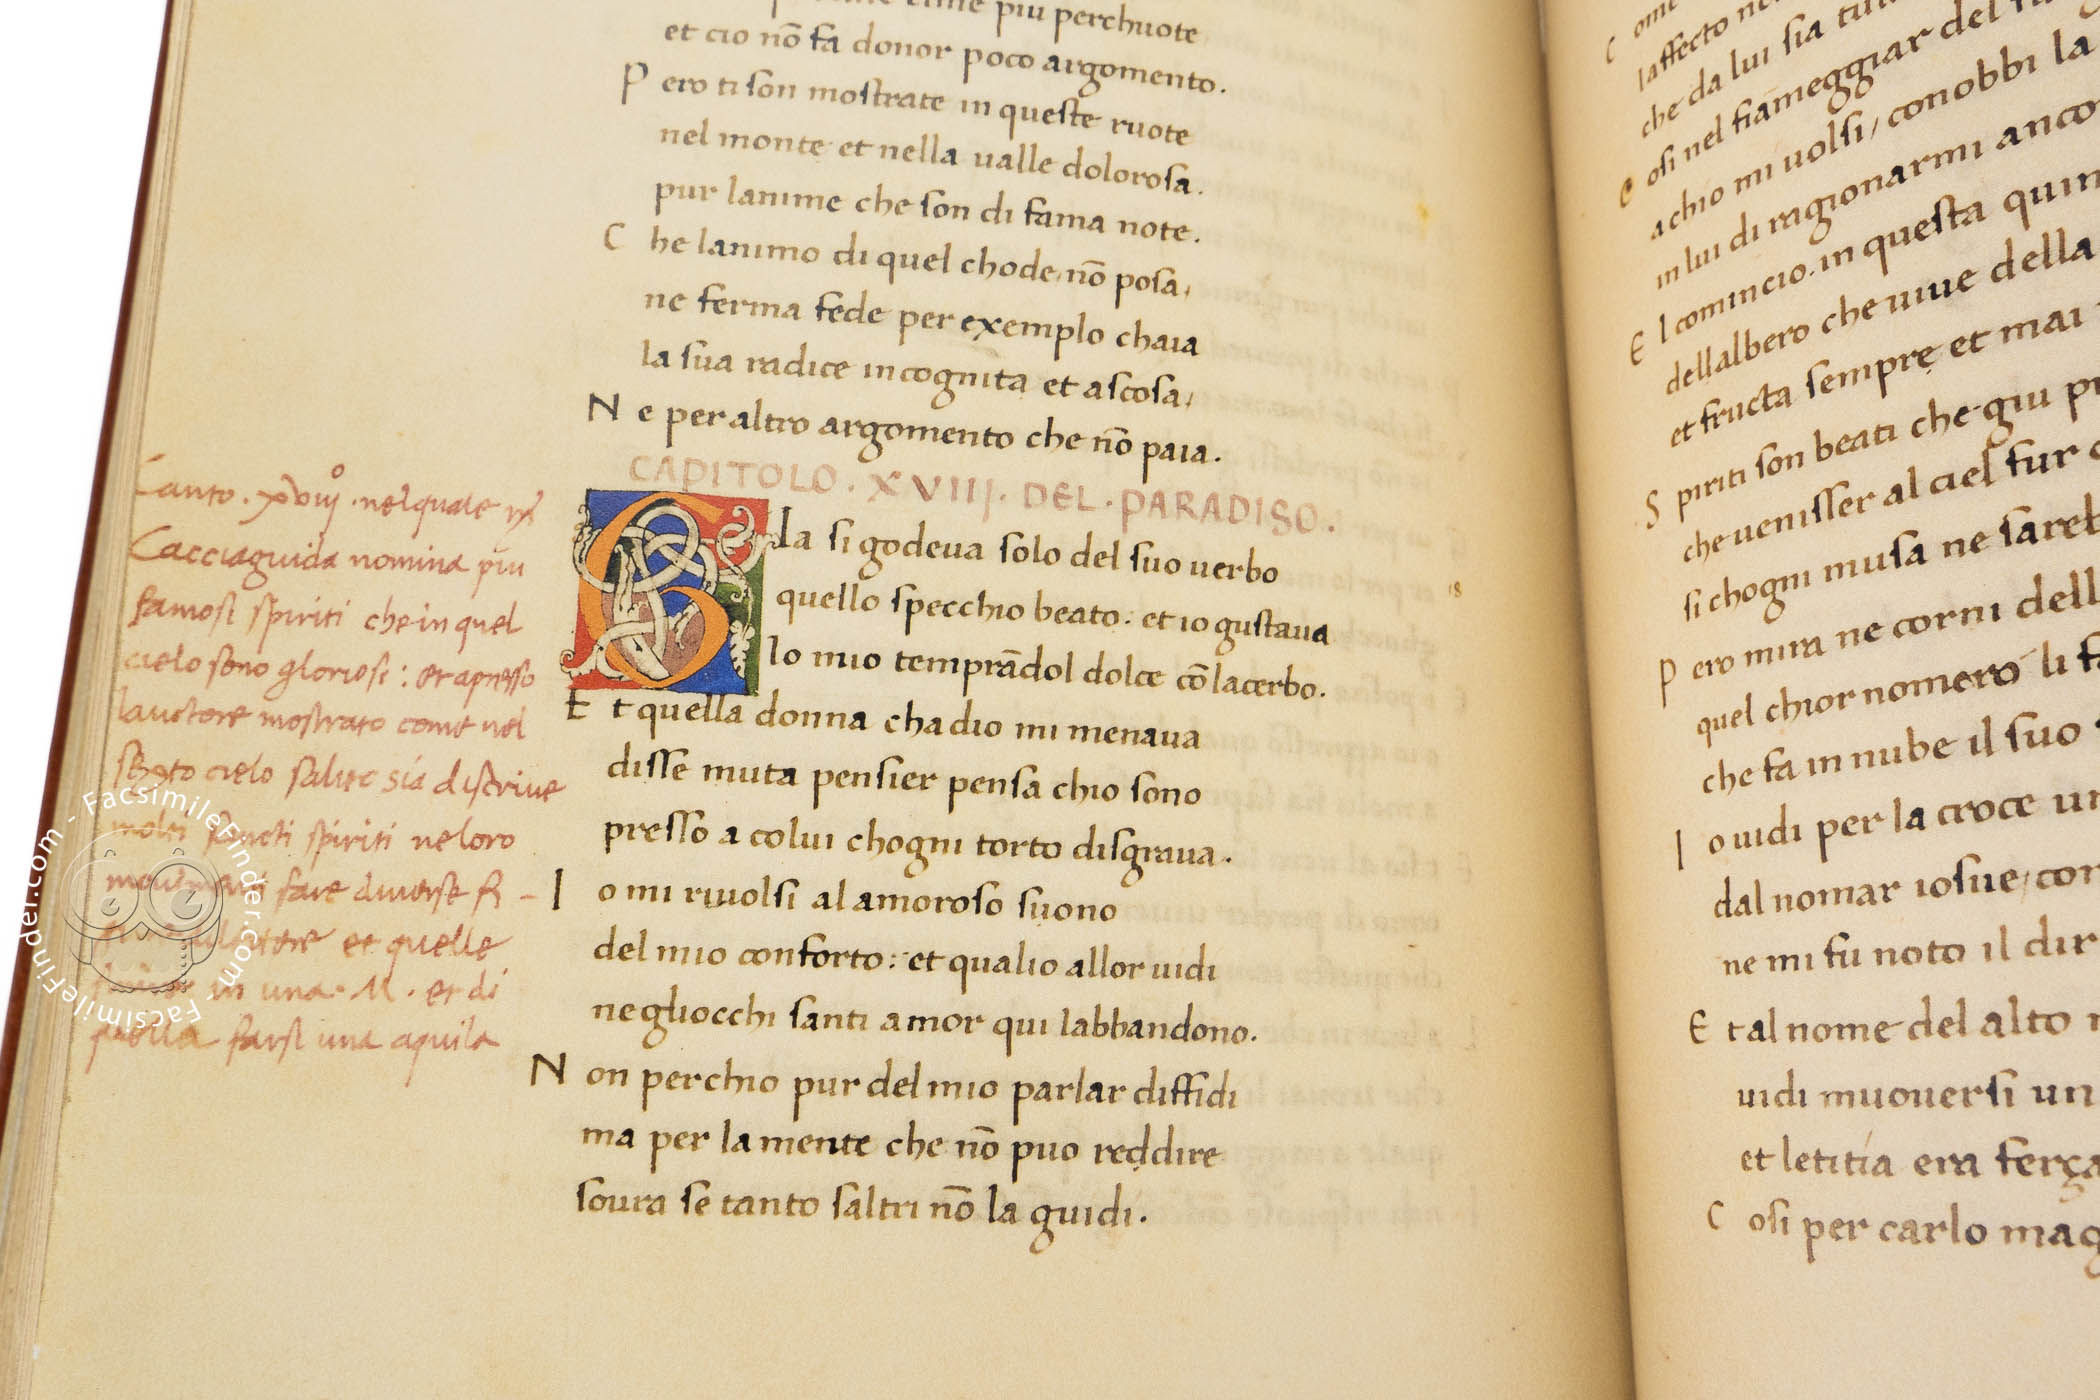 piu perchuote
et cio nō fa donor poco argomento.
P ero ti son mostrate in queste ruote
nel monte et nella ualle dolorosa.
pur lanime che son di fama note.
C he lanimo di quel chode, nō posa,
ne ferma fede per exemplo chaia
la sua radice incognita et ascosa,
N e per altro argomento che nō paia.
CAPITOLO . XVIIJ. DEL . PARADISO.
G Ia si godeua solo del suo uerbo
quello specchio beato: et io gustaua
lo mio temprādol dolce cō lacerbo.
E t quella donna cha dio mi menaua
disse muta pensier pensa chio sono
presso a colui chogni torto disgraua.
I o mi riuolsi al amoroso suono
del mio conforto: et qualio allor uidi
negliocchi santi amor qui labbandono.
N on perchio pur del mio parlar diffidi
ma per la mente che nō puo reddire
soura se tanto saltri nō la guidi.
Canto . xviij° . nelquale
Cacciaguida nomina piu
famosi spiriti che in quel
cielo sono gloriosi: et apresso
lauctore mostrato come nel
sexto cielo salito sia discriue
molti sancti spiriti ne loro
mouimenti fare diuerse fi-
et quelle
in una . M . et di
quella farsi una aquila
18
FacsimileFinder.com - FacsimileFinder.com - FacsimileFinder.com
C ome
laffecto
che da lui sia
C osi nel fiāmeggiar del
a chio mi uolsi, conobbi la
in lui di ragionarmi
E l comincio. in questa
dellalbero che uiue della
et fructa sempre et mai
S piriti son beati che giu
che uenisser al ciel fur
si chogni musa ne
P ero mira ne corni
quel chior nomero li
che fa in nube il suo
I o uidi per la croce
dal nomar iosue, 
ne mi fu noto il dir
E t al nome del alto
uidi muouersi un
et letitia era
C osi per carlo